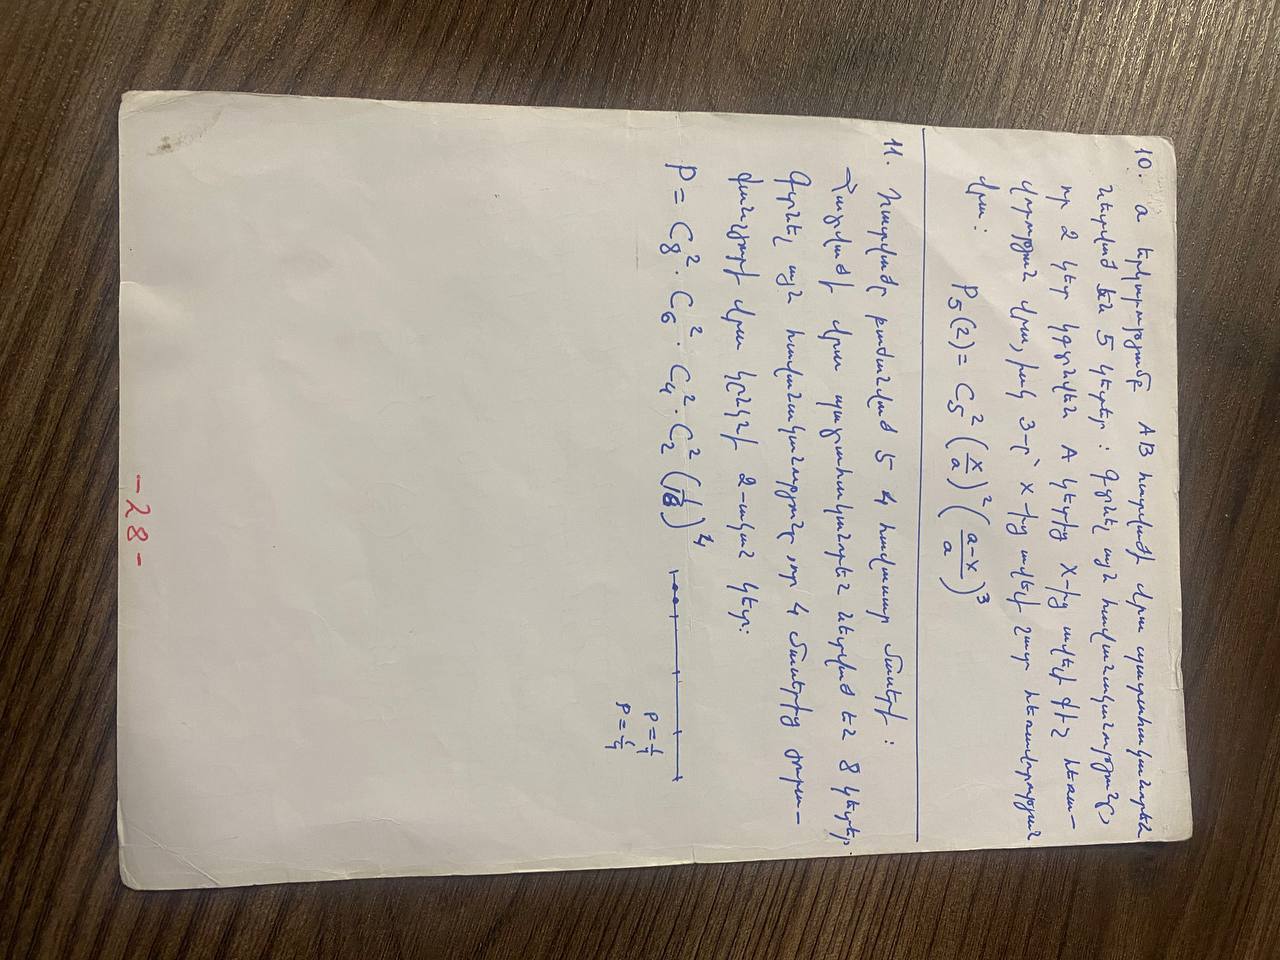 10. a երկարությամբ AB հատվածի վրա պատահականորեն
նետված են 5 կետեր: Գտնել այն հավանականությունը,
որ 2 կետ կգտնվեն A կետից X-ից ավելի քիչ հեռա-
վորության վրա, իսկ 3-ը՝ x-ից ավելի շատ հեռավորության
վրա:
P₅(2) = C₅² (x/a)² ((a-x)/a)³
11. Հատվածը բաժանված է 4 հավասար մասերի:
Հատվածի վրա պատահականորեն նետված են 8 կետեր.
Գտնել այն հավանականությունը, որ 4 մասերից յուրա-
քանչյուրի վրա կընկնի 2-ական կետ:
P = C₈² · C₆² · C₄² · C₂² (1/16)⁴
P = 1/4
P = 1/4
-28-